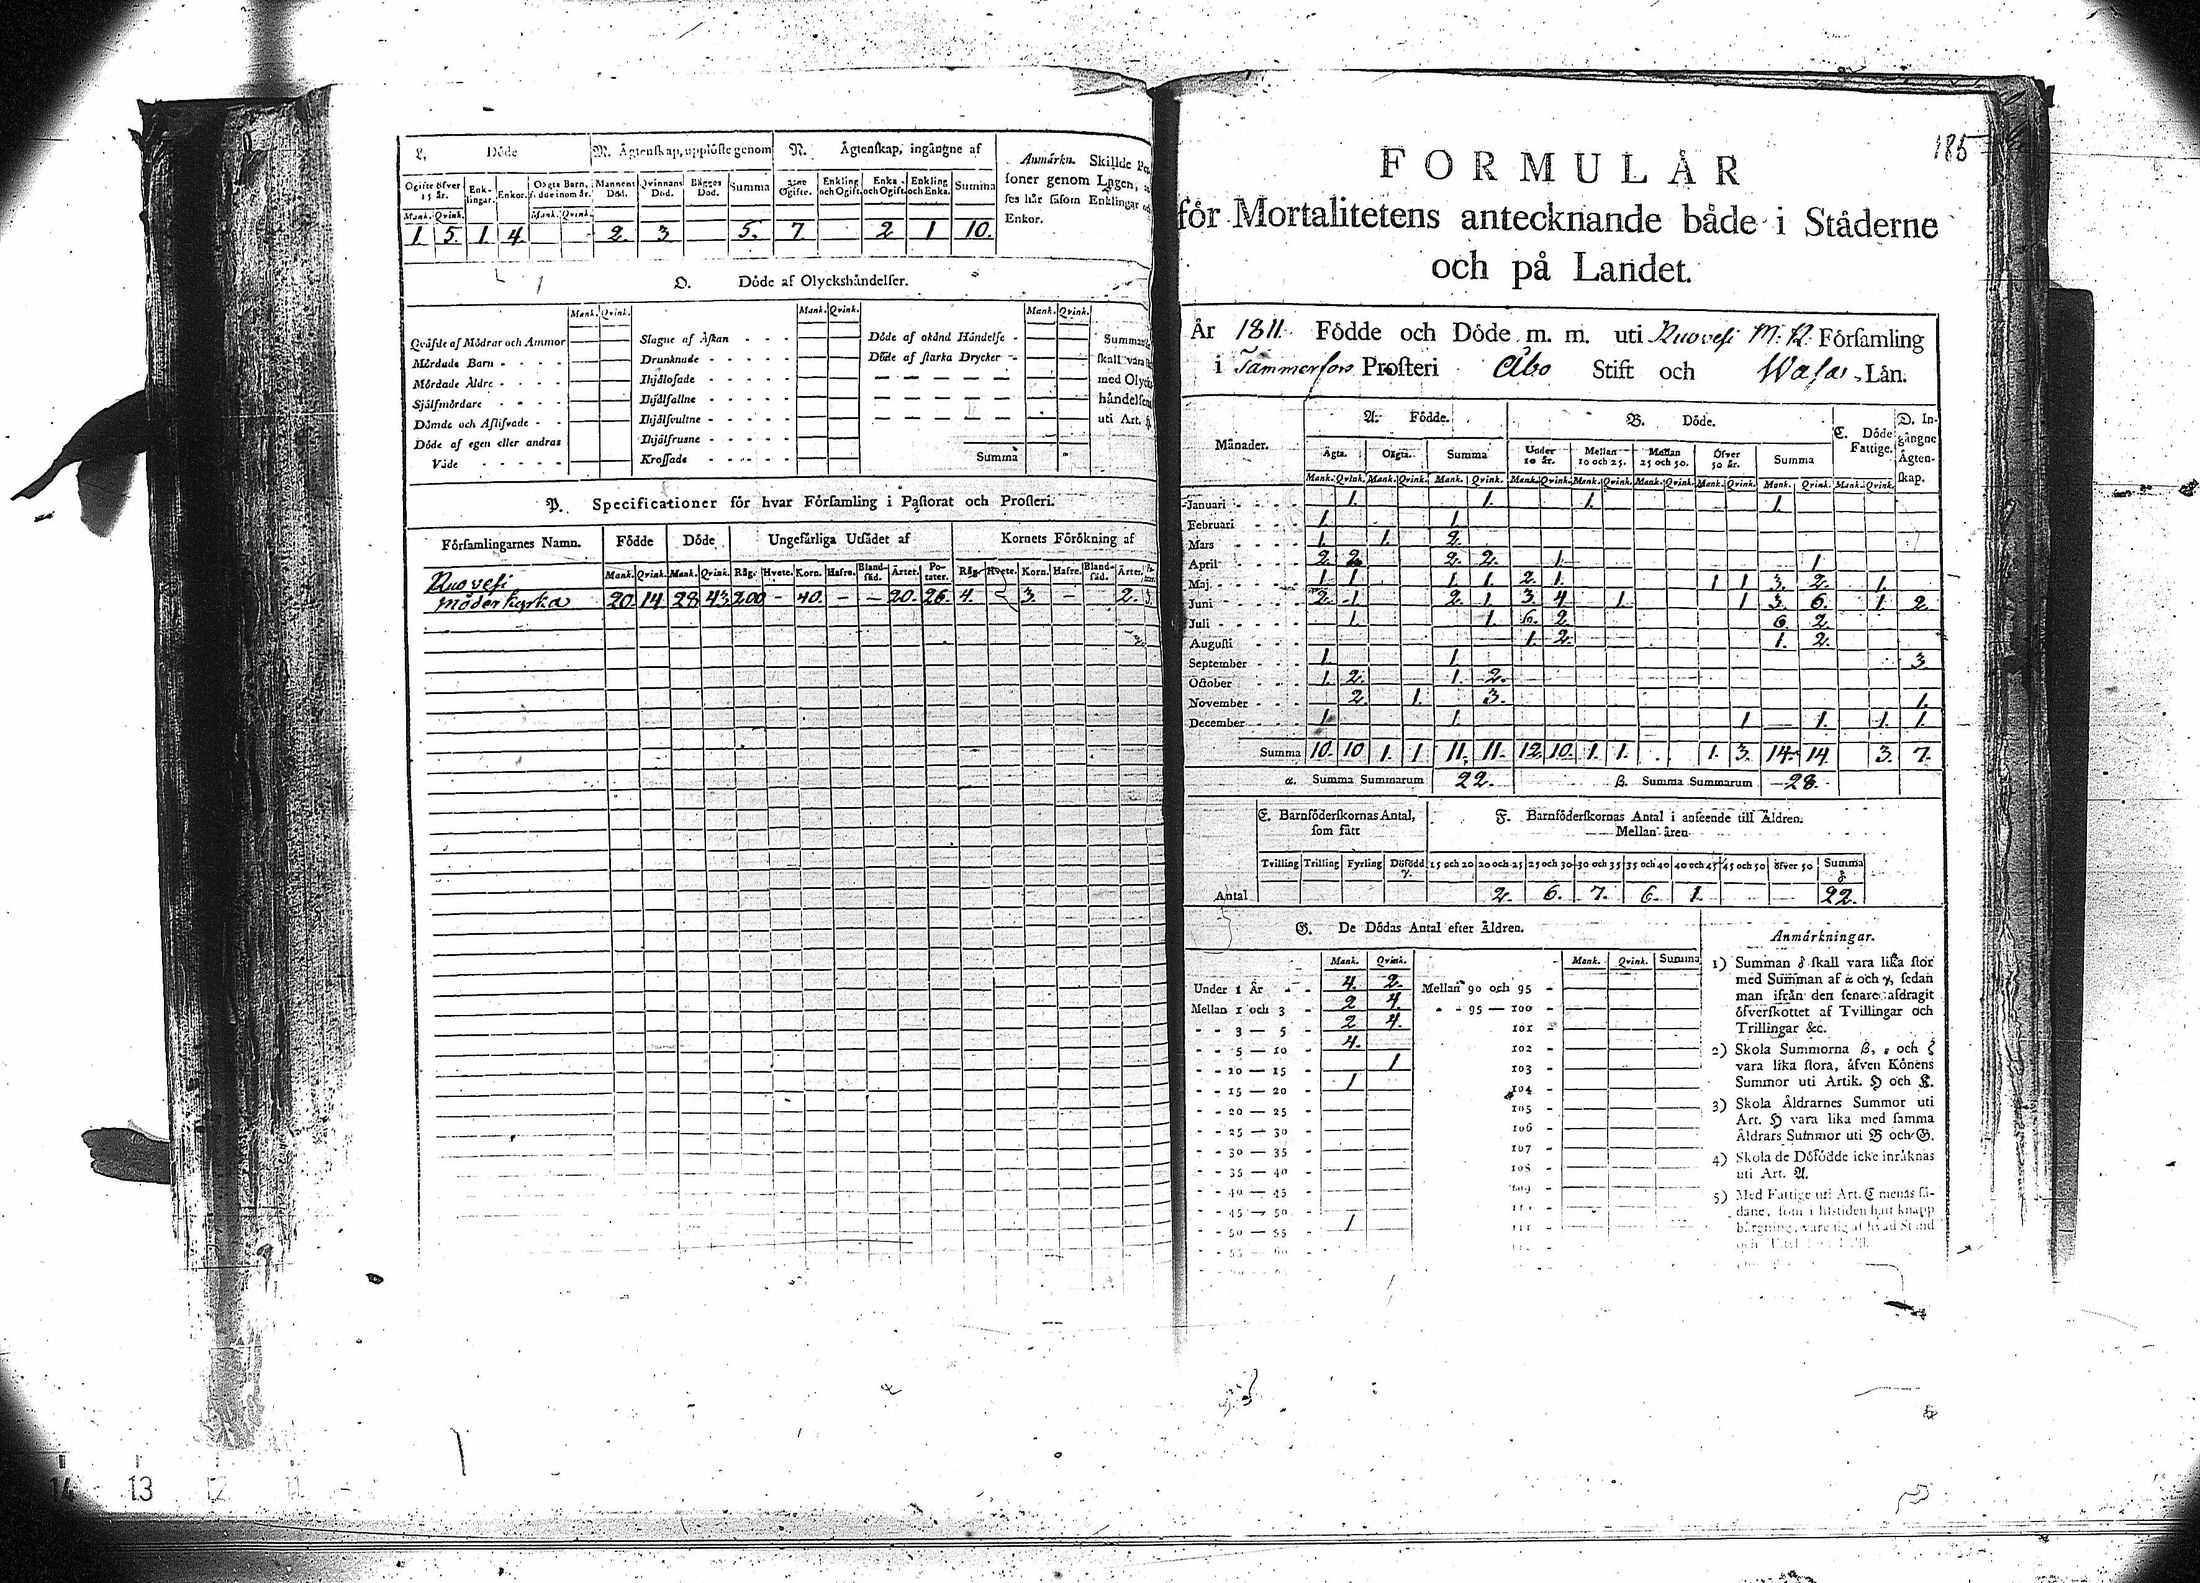 L. Döde
M. Ägtenskap, upplöste genom
N. Ägtenskap, ingångne af
Ogifte öfver 15 år. Enklingar. Enkor. Oägta Barn, födde inom år. Mannens Död. Qvinnans Död. Bägges Död. Summa 2:ne Ogifte. Enkling och Ogift. Enka och Ogift. Enkling och Enka. Summa
Mank. Qvink. Mank. Qvink.
1 5. 1. 4 2. 3 5. 7. 2 1 10.
Anmärkn. Skillde Per
soner genom Lagen,
ses här såsom Enklingar
Enkor.
O. Döde af Olyckshändelser.
Mank. Qvink. Mank. Qvink. Mank. Qvink.
Qväfde af Mödrar och Ammor
Mördade Barn - - - -
Mördade Äldre - - - -
Självmördare - - - -
Dömde och Aflifvade - -
Döde af egen eller andras
Våde - - - - -
Slagne af Åskan - - -
Drunknade - - - - -
Ihjälosade - - - - -
Ihjälfallne - - - - -
Ihjälsvultne - - - - -
Ihjälfrusne - - - - -
Krossade - - - - -
Döde af okänd Händelse -
Döde af starka Drycker -
Summa
Summa
skall vara
med Olyck
händelsen
uti Art.
P. Specificationer för hvar Församling i Pastorat och Prosteri.
Församlingarnes Namn. Födde Döde Ungefärliga Utsädet af Kornets Förökning af
Mank. Qvink. Mank. Qvink. Råg. Hvete. Korn. Hafre. Blandsäd. Ärter. Potater. Råg. Hvete. Korn. Hafre. Blandsäd. Ärter.
Ruovesi
Moderkyrka 20. 14 28 43 200 — 40. — — 20. 26. 4. 3. — 2.
185
FORMULÄR
för Mortalitetens antecknande både i Städerne
och på Landet.
År 1811. Födde och Döde m. m. uti Ruovesi M. K. Församling
i Tammerfors Prosteri Åbo Stift och Wasa Län.
Månader. A. Födde. B. Döde. C. Döde Fattige. D. Ingångne Ägtenskap.
Ägta. Oägta. Summa Under 10 år. Mellan 10 och 25. Mellan 25 och 50. Öfver 50 år. Summa
Mank. Qvink. Mank. Qvink. Mank. Qvink. Mank. Qvink. Mank. Qvink. Mank. Qvink. Mank. Qvink. Mank. Qvink. Mank. Qvink.
Januari - - - 1. 1. 1. 1.
Februari - - - 1. 1.
Mars - - - 1. 1. 2.
April - - - 2. 2. 2. 2. 1. 1
Maj - - - 1 1 1 1 2. 1. 1 1 3. 2. 1.
Juni - - - 2. 1 2. 1 3. 4 1 1 3. 6. 1 2.
Juli - - - 1. 1. 6. 2 6. 2
Augusti - - - 1. 2. 1. 2.
September - - - 1. 1. 3.
October - - - 1. 2. 1. 2.
November - - - 2. 1. 3. 1.
December - - - 1. 1. 1 1. 1. 1.
Summa 10. 10 1. 1 11. 11. 12. 10. 1. 1. 1. 3. 14. 14 3. 7.
α. Summa Summarum 22. β. Summa Summarum 28.
E. Barnföderskornas Antal, som fått
F. Barnföderskornas Antal i anseende till Åldren.
Mellan åren
Tvilling Trilling Fyrling Dödfödd γ. 15 och 20 20 och 25 25 och 30 30 och 35 35 och 40 40 och 45 45 och 50 öfver 50 Summa δ
Antal 2. 6. 7. 6. 1. 22.
G. De Dödas Antal efter Åldren.
Mank. Qvink. Mank. Qvink. Summa
Under 1 År - - 4. 2. Mellan 90 och 95 -
Mellan 1 och 3 - 2 4 - - 95 — 100 -
- - 3 — 5 - 2 4. 101 -
- - 5 — 10 - 4. 102 -
- - 10 — 15 - 1 103 -
- - 15 — 20 - 1 104 -
- - 20 — 25 - 105 -
- - 25 — 30 - 106 -
- - 30 — 35 - 107 -
- - 35 — 40 - 108 -
- - 40 — 45 - 109 -
- - 45 — 50 -
- - 50 — 55 - 1
- - 55 — 60 -
Anmärkningar.
1) Summan δ skall vara lika stor
med Summan af α och γ, sedan
man ifrån den senare afdragit
öfverskottet af Tvillingar och
Trillingar &c.
2) Skola Summorna β, ε och ζ
vara lika stora, äfven Könens
Summor uti Artik. H och K.
3) Skola Åldrarnes Summor uti
Art. H vara lika med samma
Åldrars Summor uti B och G.
4) Skola de Dödfödde icke inräknas
uti Art. A.
5) Med Fattige uti Art. C menas så-
dane, som i lifstiden haft knapp
bärgning, vare sig af hvad Stånd
14 13 12 11